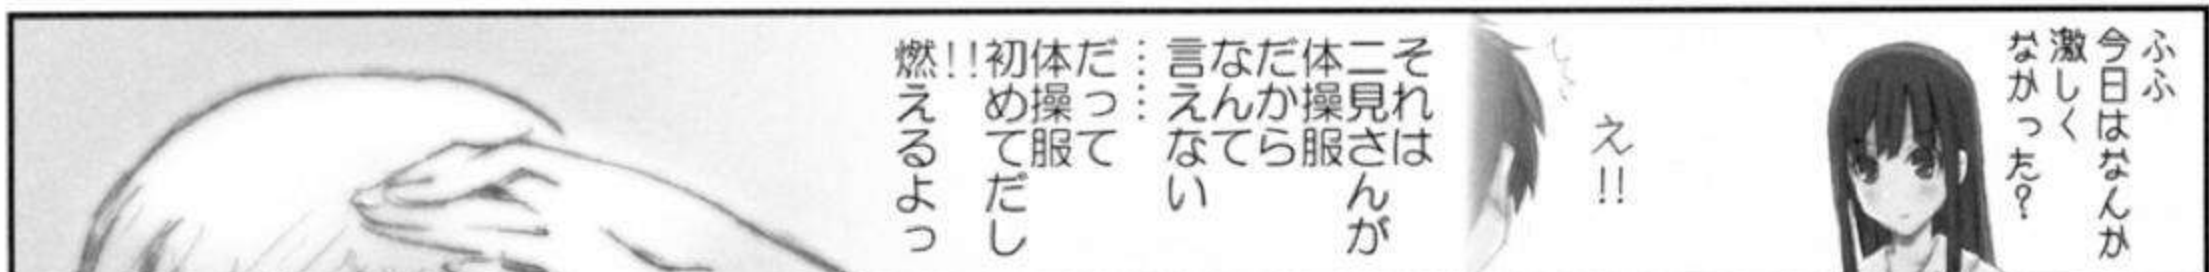 ふふ
今日はなんか
激しく
なかった?
え!!
それは
二見さんが
体操服
だから
なんて
言えない
……
だって
体操服
初めてだし
!!
燃えるよっ